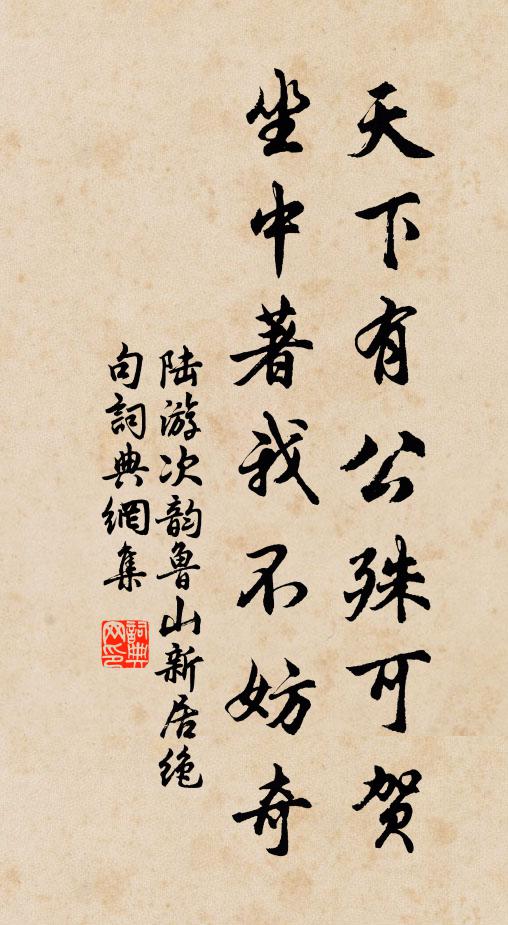 天下有公殊可贺
坐中著我不妨奇
陆游次韵鲁山新居绝
句詞典網集
詞典網印